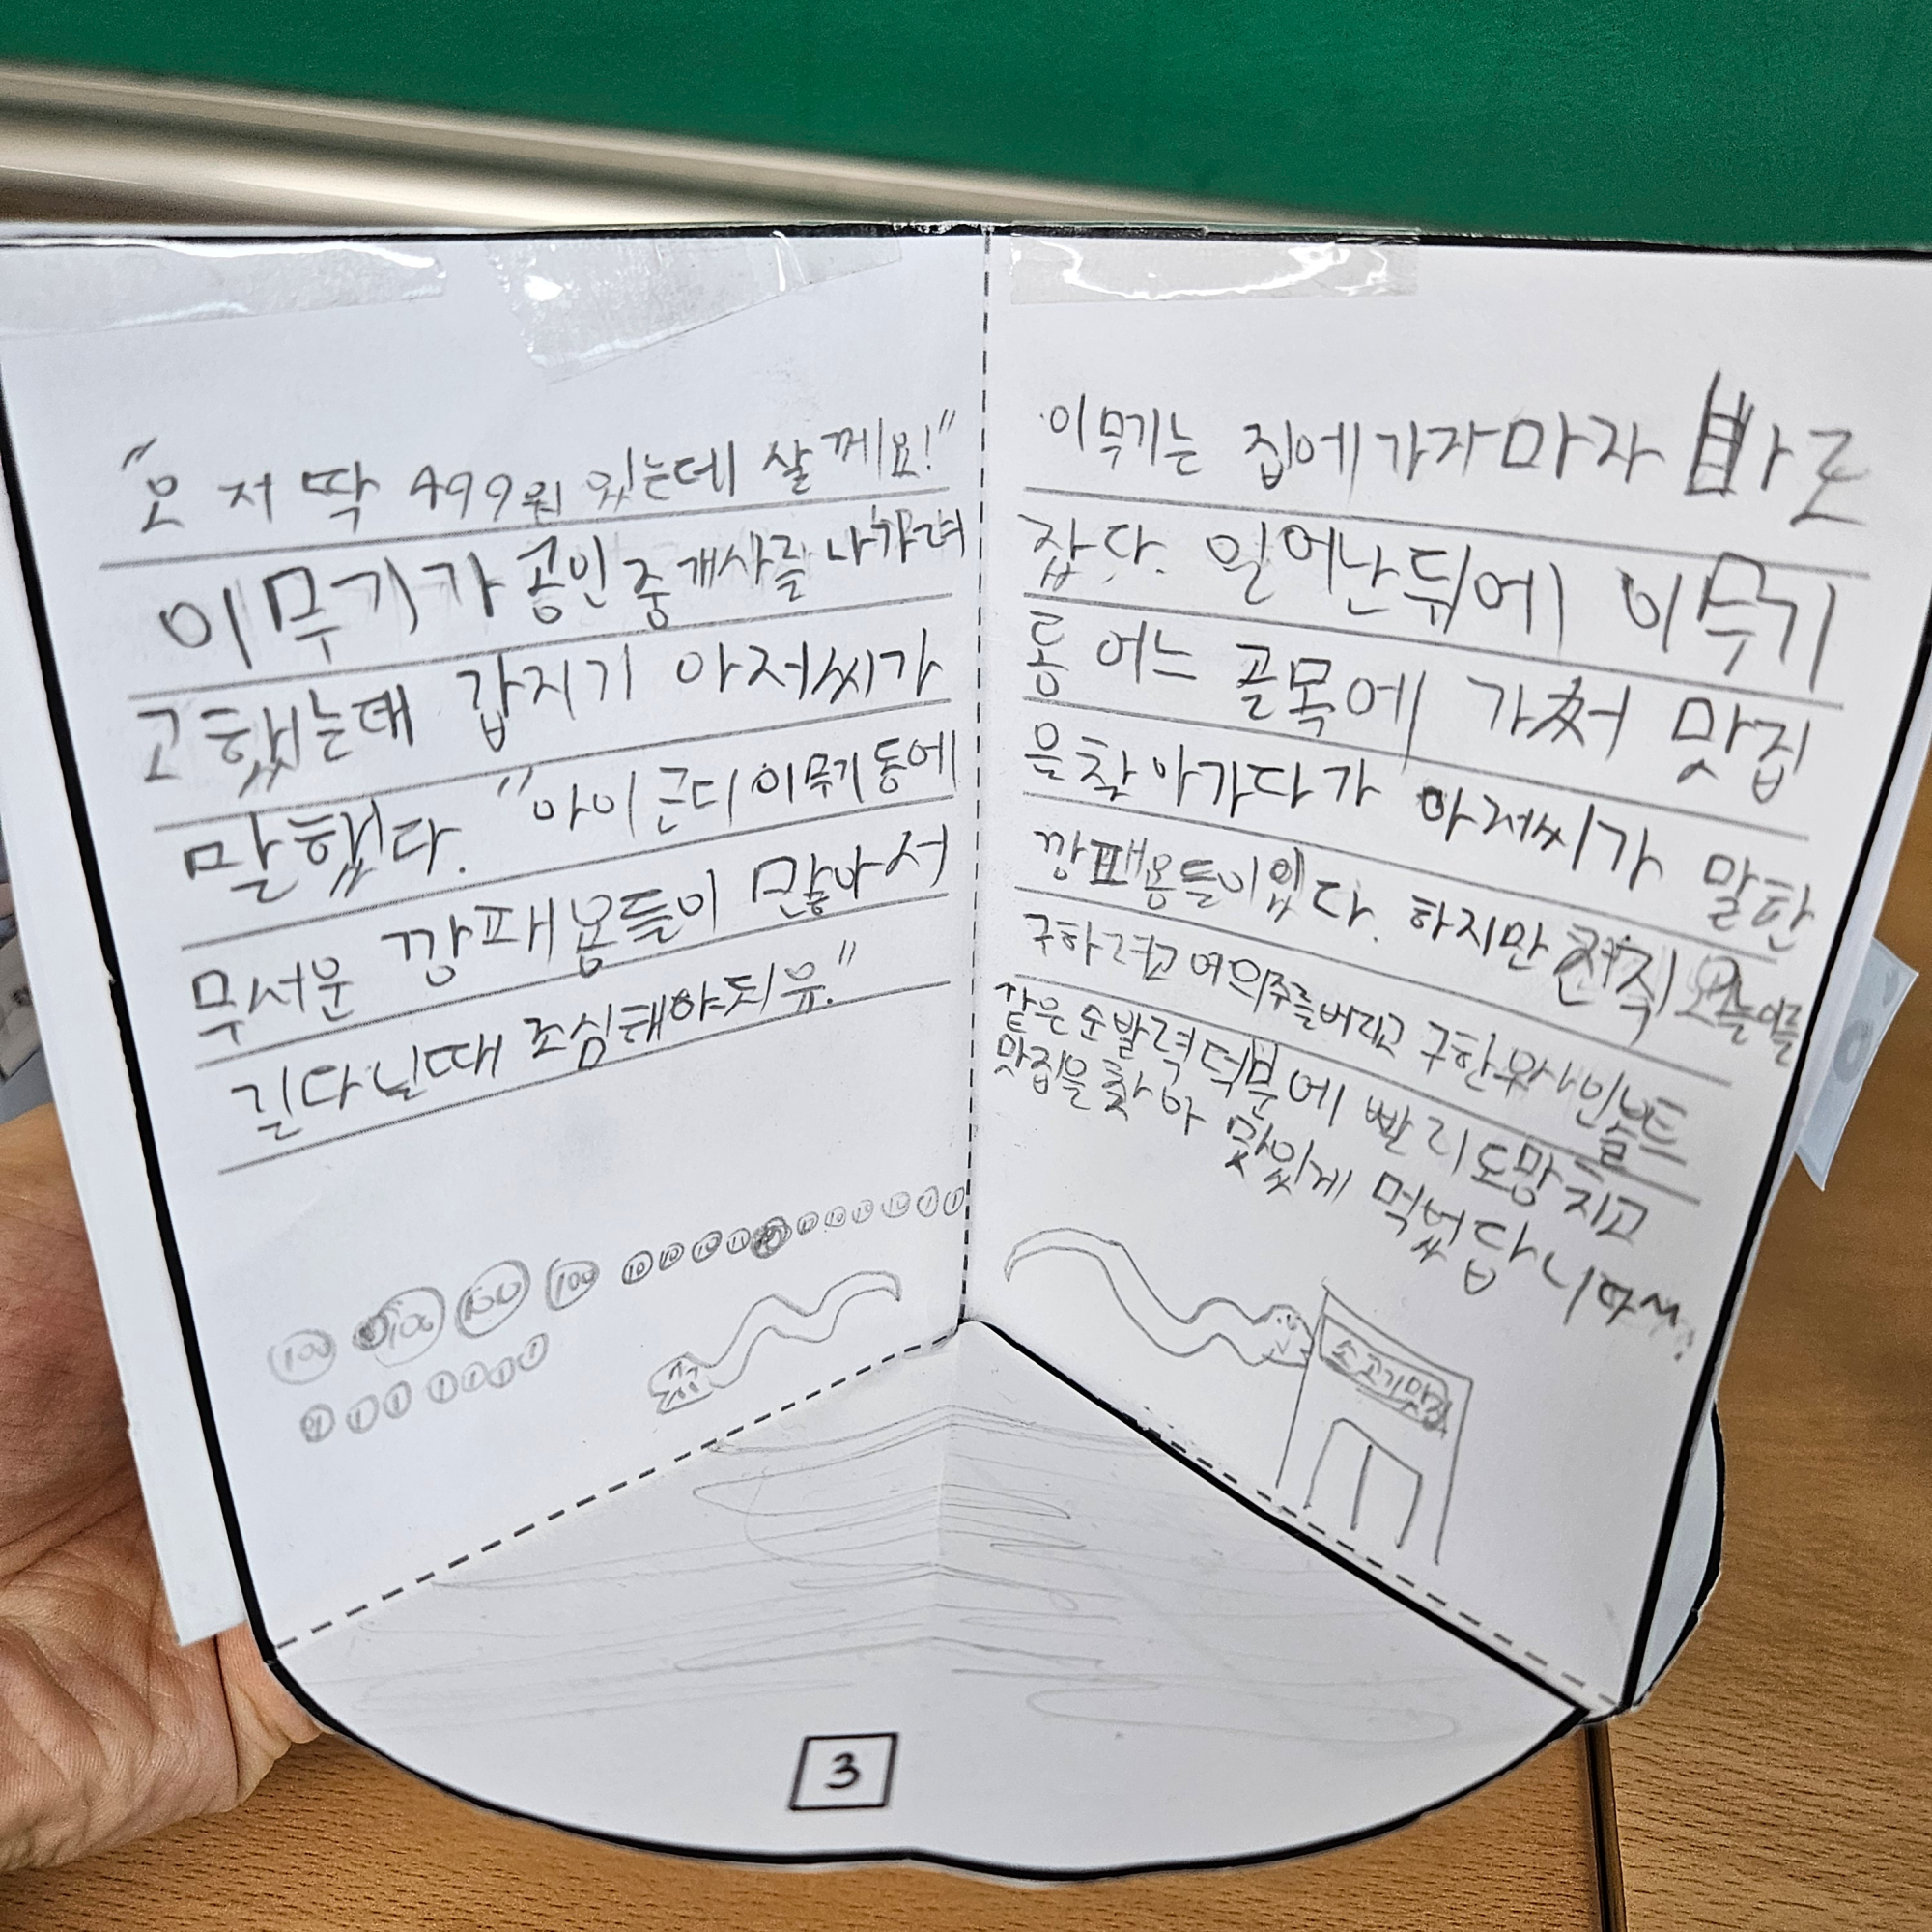 "오 저 딱 499원 있는데 살께요!"
이무기가 공인중개사를 나가려
고했는데 갑자기 아저씨가
말했다. "아이 근디 이무기동에
무서운 깡패용들이 많아서
길다닐때 조심해야되유."
100 100 100 100 10 10 10
1 1 1 1 1 1
이무기는 집에가자마자 바로
잤다. 일어난뒤에 이무기
동 어느 골목에 가쳐 맛집
을찾아가다가 아저씨가 말한
깡패용들이있다. 하지만
구하려고 여의주를버리고 구한 우사인볼트
같은 순발력 덕부에 빨리도망치고
맛집을 찾아 맛있게 먹었답니다~
소고기맛집
3